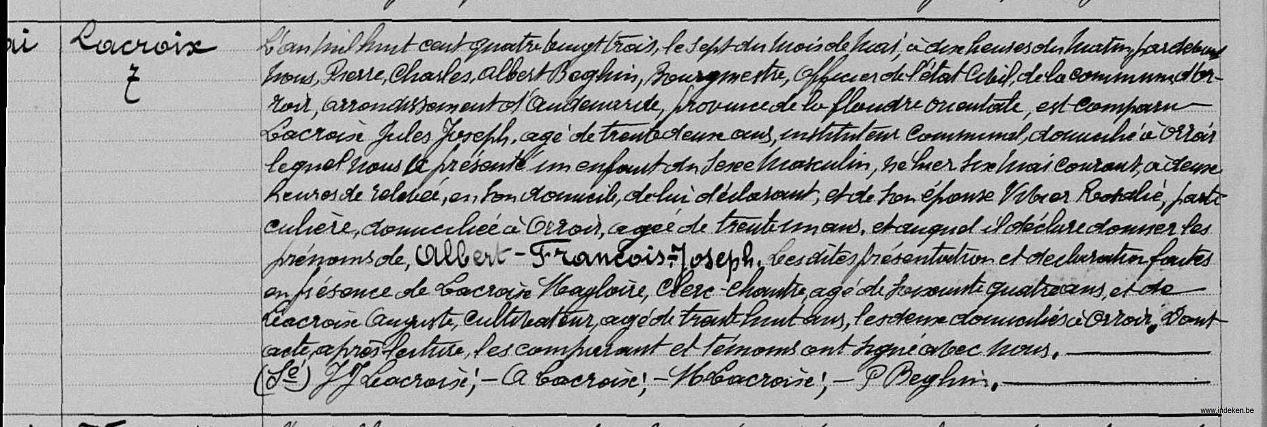 ai
Lacroix
7
L'an mil huit cent quatre vingt trois, le sept du mois de Mai, à dix heures du matin, par devant
Nous, Pierre, Charles, Albert Beghin, bourgmestre, officier de l'état Civil, de la commune d'Or-
roir, arrondissement d'Audenarde, province de la flandre orientale, est comparu
Lacroix Jules Joseph, agé de trente deux ans, instituteur communal, domicilié à Orroir
lequel nous a présenté un enfant du sexe Masculin, né hier six Mai courant, à deux
heures de relevée, en son domicile, de lui déclarant, et de son épouse Rosalie, parti-
culière, domiciliée à Orroir, agée de trente un ans, et auquel il déclare donner les
prénoms de, Albert-François-Joseph. Les dites présentation et declaration faites
en présence de Lacroix Magloire, Clerc-Chantre, agé de soixante quatre ans, et de
Lacroix Auguste, Cultivateur, agé de trente huit ans, les deux domiciliés à Orroir. Dont
acte, après lecture, les comparant et témoins ont signé avec Nous.
(Sé) JJ Lacroix; - A Lacroix; - M Lacroix; - P Beghin.
www.indeken.be